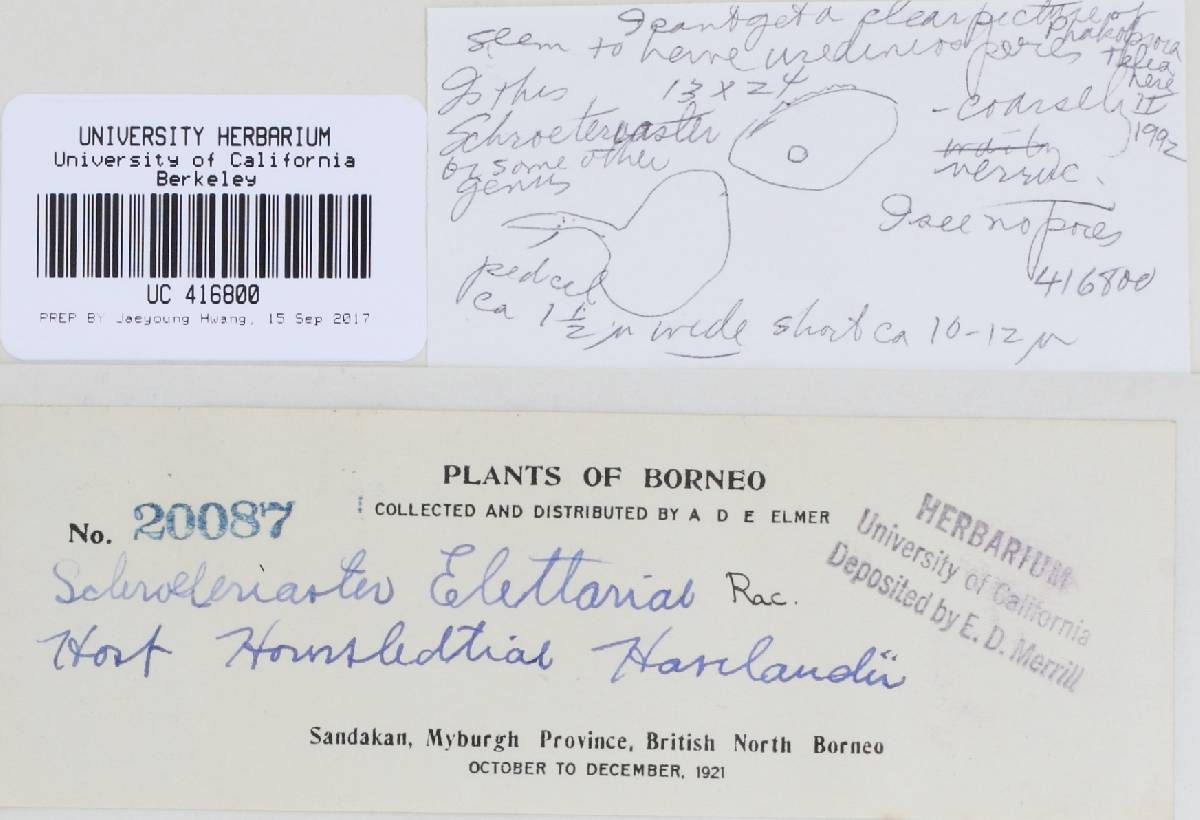 UNIVERSITY HERBARIUM
University of California
Berkeley
UC 416800
PREP BY Jaeyoung Hwang, 15 Sep 2017
I cant get a clear picture of
seem to have urediniospores
Phakopsora
here
II
1992
Is this
Schroeteriaster
or some other
genus
13 x 24
- coarsely
verruc.
I see no pores
416800
pedicel
ca 1 1/2 µ wide short ca 10-12 µ
PLANTS OF BORNEO
COLLECTED AND DISTRIBUTED BY A D E ELMER
No. 20087
Schroeteriaster Elettariae Rac.
Host Hornstedtiae Havilandii
HERBARIUM
University of California
Deposited by E. D. Merrill
Sandakan, Myburgh Province, British North Borneo
OCTOBER TO DECEMBER, 1921